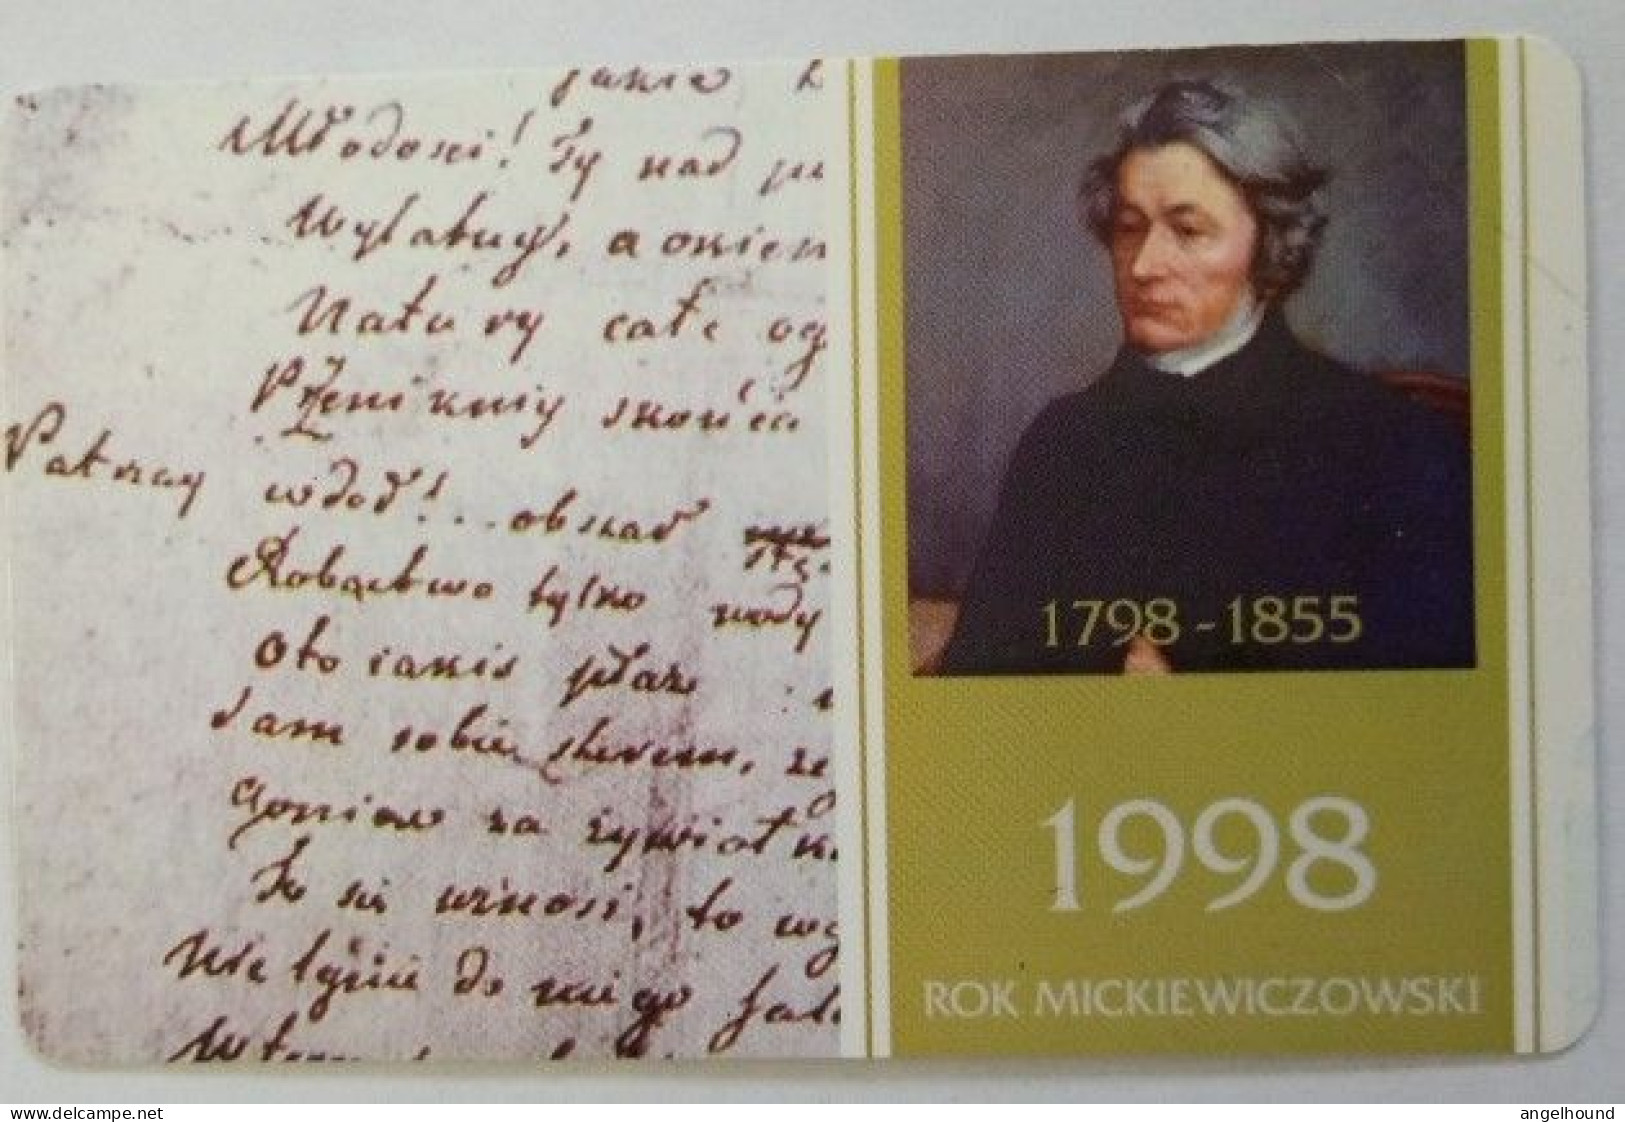 jakie
Młodości! Ty nad
Wylatuy, a okiem
Natury całe og
Przeniknij skońca
Patrzay wdoł!.. obszar
Robactwo tylko wody
Oto iakiś płaz
Sam sobie sterem, że
Goniąc za żywiołk
To się wznosi, to wg
Nie lgnie do niego fala
1798 - 1855
1998
ROK MICKIEWICZOWSKI
www.delcampe.net
angelhound